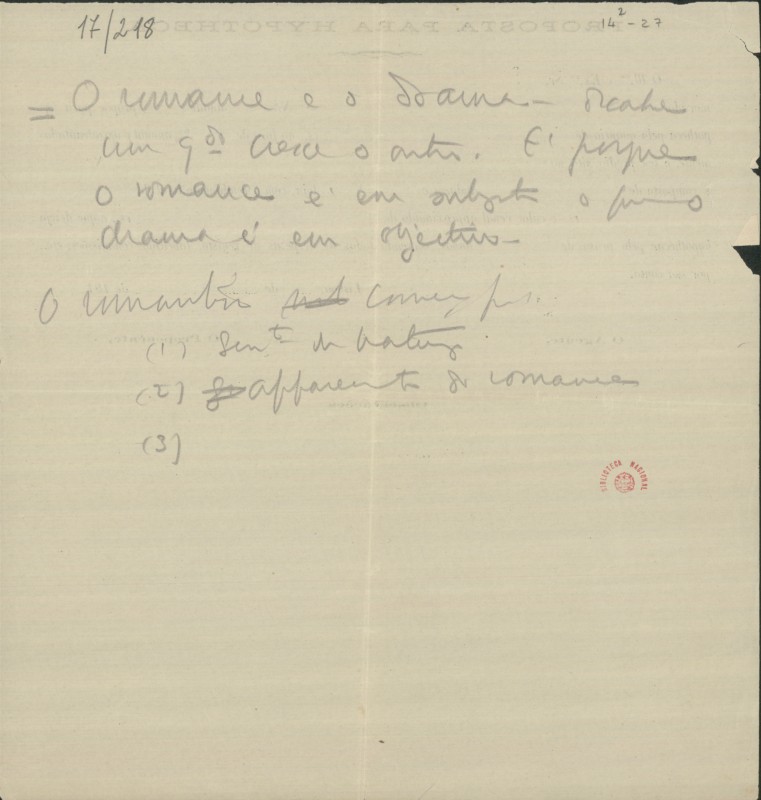 17/218
14²-27
PROPOSTA PARA HYPOTHECA
= O romance e o drama — decahe
um qdo cresce o outro. E' porque
o romance é em
drama é em objectivo —
O romantismo por:
(1) Sento da Natureza
(2) apparecimento do romance
(3)
BIBLIOTECA NACIONAL